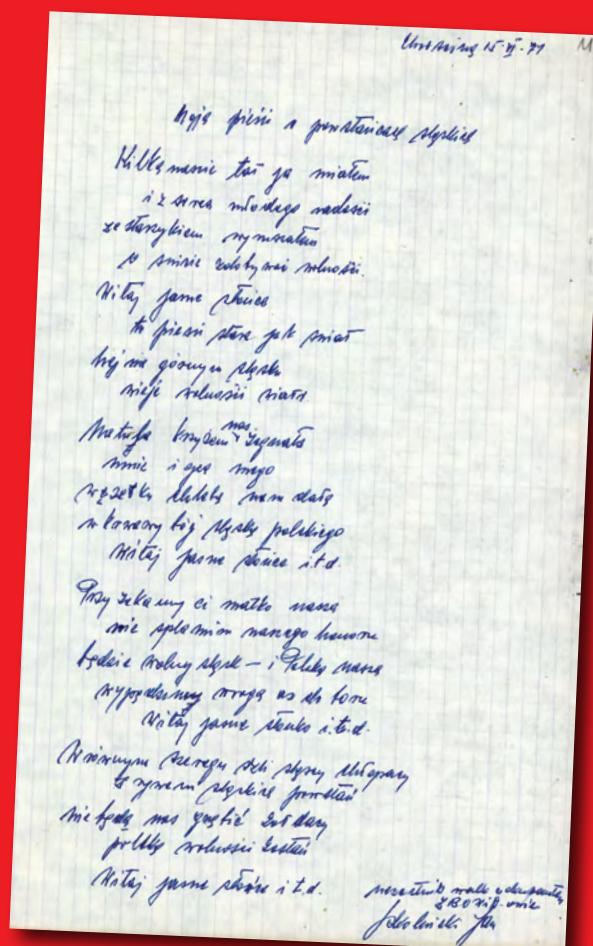 15-VI-71
Moja pieśń o powstańcach śląskich
Kilkanaście lat ja miałem
i z serca młodego radości
ze starzykiem wyruszałem
zdobywać wolności.
Witaj jasne słońce
tu pieśni stare jak świat
hej na górnym śląsku
wieje wolności wiatr.
Matula krzyżem nas żegnała
mnie i ojca mego
węzełku chleba nam dała
w krwawy bój śląska polskiego
Witaj jasne słońce i t.d.
Przyżekamy ci matko nasza
nie splamim naszego honoru
będzie wolny śląsk – i Polska nasza
wypędzimy wroga as do boru
Witaj jasne słonko i.t.d.
W równym szeregu szli słązcy chłopacy
z śląskich powstań
nie będą nas gnębić
polska wolności
Witaj jasne słońce i t.d.
uczestnik walk
Jan